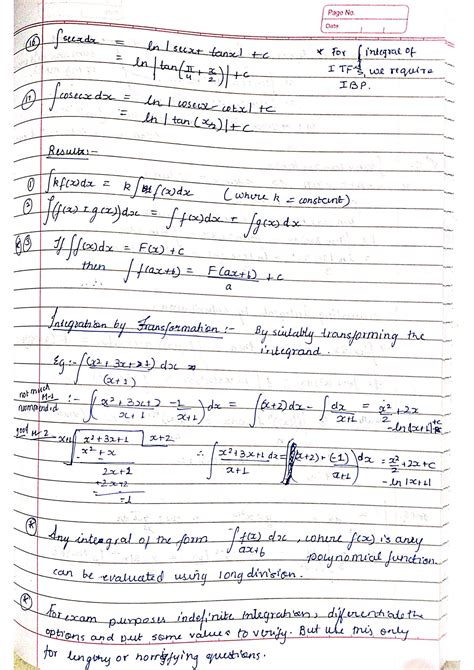 Page No.
Date
(16) ∫secx dx = ln|secx + tanx| + c
= ln|tan(π/4 + x/2)| + c
* For ∫ integral of
ITFs, we require
IBP.
(17) ∫cosecx dx = ln|cosecx - cotx| + c
= ln|tan(x/2)| + c
Results:-
(1) ∫kf(x)dx = k∫f(x)dx (where k = constant)
(2) ∫(f(x) ± g(x))dx = ∫f(x)dx ± ∫g(x)dx
(3) If ∫f(x)dx = F(x) + c
then ∫f(ax+b) = F(ax+b)/a + c
Integration by Transformation :- By suitably transforming the
integrand.
Eg:- ∫(x²+3x+1)/(x+1) dx
not much recommended M-1 :- ∫((x²+3x+2)/(x+1) - 1/(x+1))dx = ∫(x+2)dx - ∫dx/(x+1) = x²/2 + 2x - ln|x+1| + c
good M-2 x+1 x²+3x+1 x+2
x²+x
2x+1
2x+2
-1
∴ ∫(x²+3x+1)/(x+1) dx = ∫((x+2) + (-1)/(x+1))dx = x²/2 + 2x + c - ln|x+1|
(*) Any integral of the form ∫f(x)/(ax+b) dx, where f(x) is any
polynomial function
can be evaluated using long division.
(*) For exam purposes indefinite integration, differentiate the
options and put some values to verify. But use this only
for lengthy or horrifying questions.